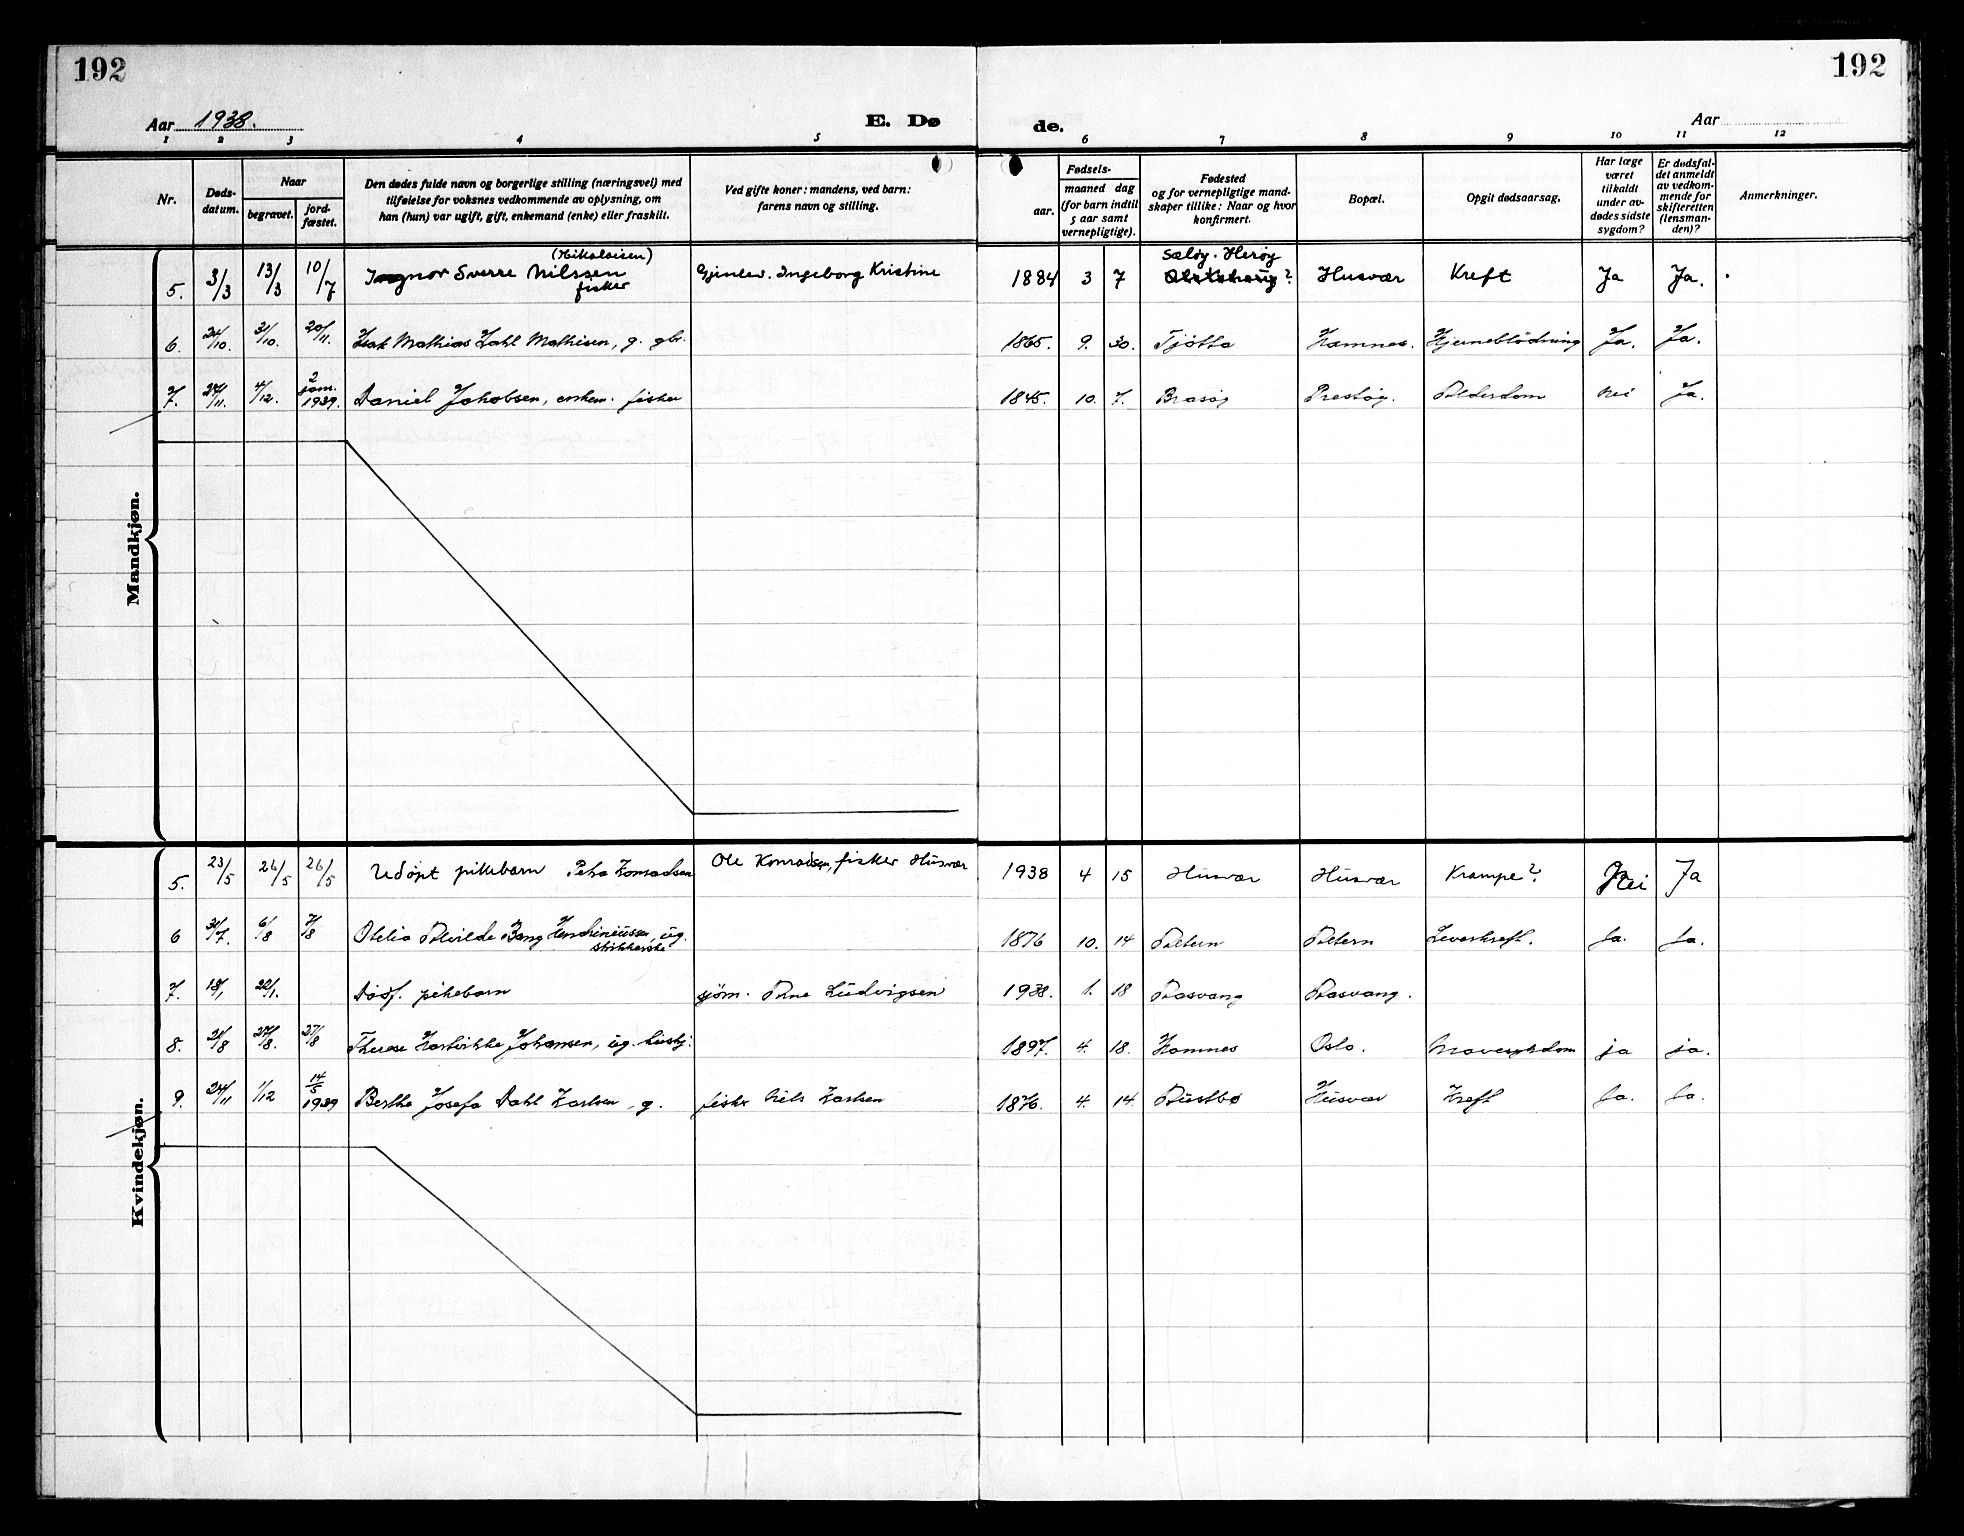 192
192
Aar 1938.
E. Dø
de.
Aar
1 2 3 4 5 6 7 8 9 10 11 12
Nr.
Døds-
datum.
Naar
begravet.
jord-
fæstet.
Den dødes fulde navn og borgerlige stilling (næringsvei) med
tilføielse for voksnes vedkommende av oplysning, om
han (hun) var ugift, gift, enkemand (enke) eller fraskilt.
Ved gifte koner: mandens, ved barn:
farens navn og stilling.
Fødsels-
aar.
maaned dag
(for barn indtil
5 aar samt
vernepligtige).
Fødested
og for vernepligtige mand-
skaper tillike: Naar og hvor
konfirmert.
Bopæl.
Opgit dødsaarsag.
Har læge
været
tilkaldt
under av-
dødes sidste
sygdom?
Er dødsfal-
det anmeldt
av vedkom-
mende for
skifteretten
(lensman-
den)?
Anmerkninger.
Mandkjøn.
(Nikolaisen) Sæløy. Herøy
5. 3/3 13/3 10/7 Sverre Nilssen Gjenlev. Ingeborg Kristine 1884 3 7 ? Husvær Kreft Ja Ja.
fisker
6. 24/10. 31/10. 20/11. Isak Mathias Dahl Mathisen, g. gbr. 1865. 9. 30. Tjøtta Hamnes. Hjerneblödning Ja. Ja.
7. 27/11. 4/12. 2 jan. 1939. Daniel Jakobsen, enkem. fisker 1845. 10. 7. Brasöy Prestöy. Alderdom Nei Ja.
Kvindekjøn.
5. 23/5 26/5 26/5 Udöpt pikebarn Petra Konradsen Ole Konradsen, fisker Husvær 1938 4 15 Husvær Husvær Krampe? Nei Ja
6 30/7. 6/8 7/8 Otelia Alvilde Bang ug. 1876 10. 14 Altern Altern Leverkreft. Ja. Ja.
strikkerske
7. 18/1 22/1. Dödf. pikebarn sjöm. Arne Ludvigsen 1938. 1. 18 Aasvang Aasvang.
8. 21/8 27/8. 27/8 Therese Johansen, ug. hushj. 1897. 4. 18. Hamnes Oslo. Mavesykdom ja ja.
9. 24/11 1/12 14/5 1939 Berthe Josefa Dahl Karlsen, g. fisker Nils Karlsen 1876. 4. 14. Austbø Husvær Kreft Ja. Ja.